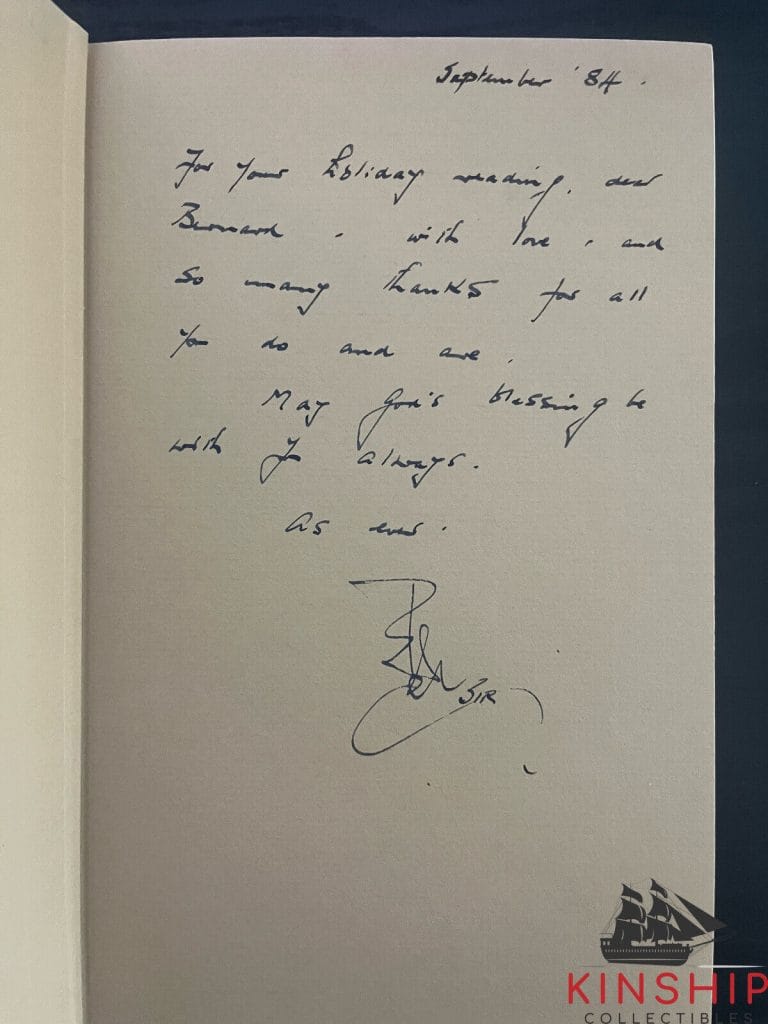 September '84.
For your holiday reading, dear
Bernard, with love, and
so many thanks for all
you do and are.
May God's blessing be
with you always.
As ever.
SIR
KINSHIP
COLLECTIBLES